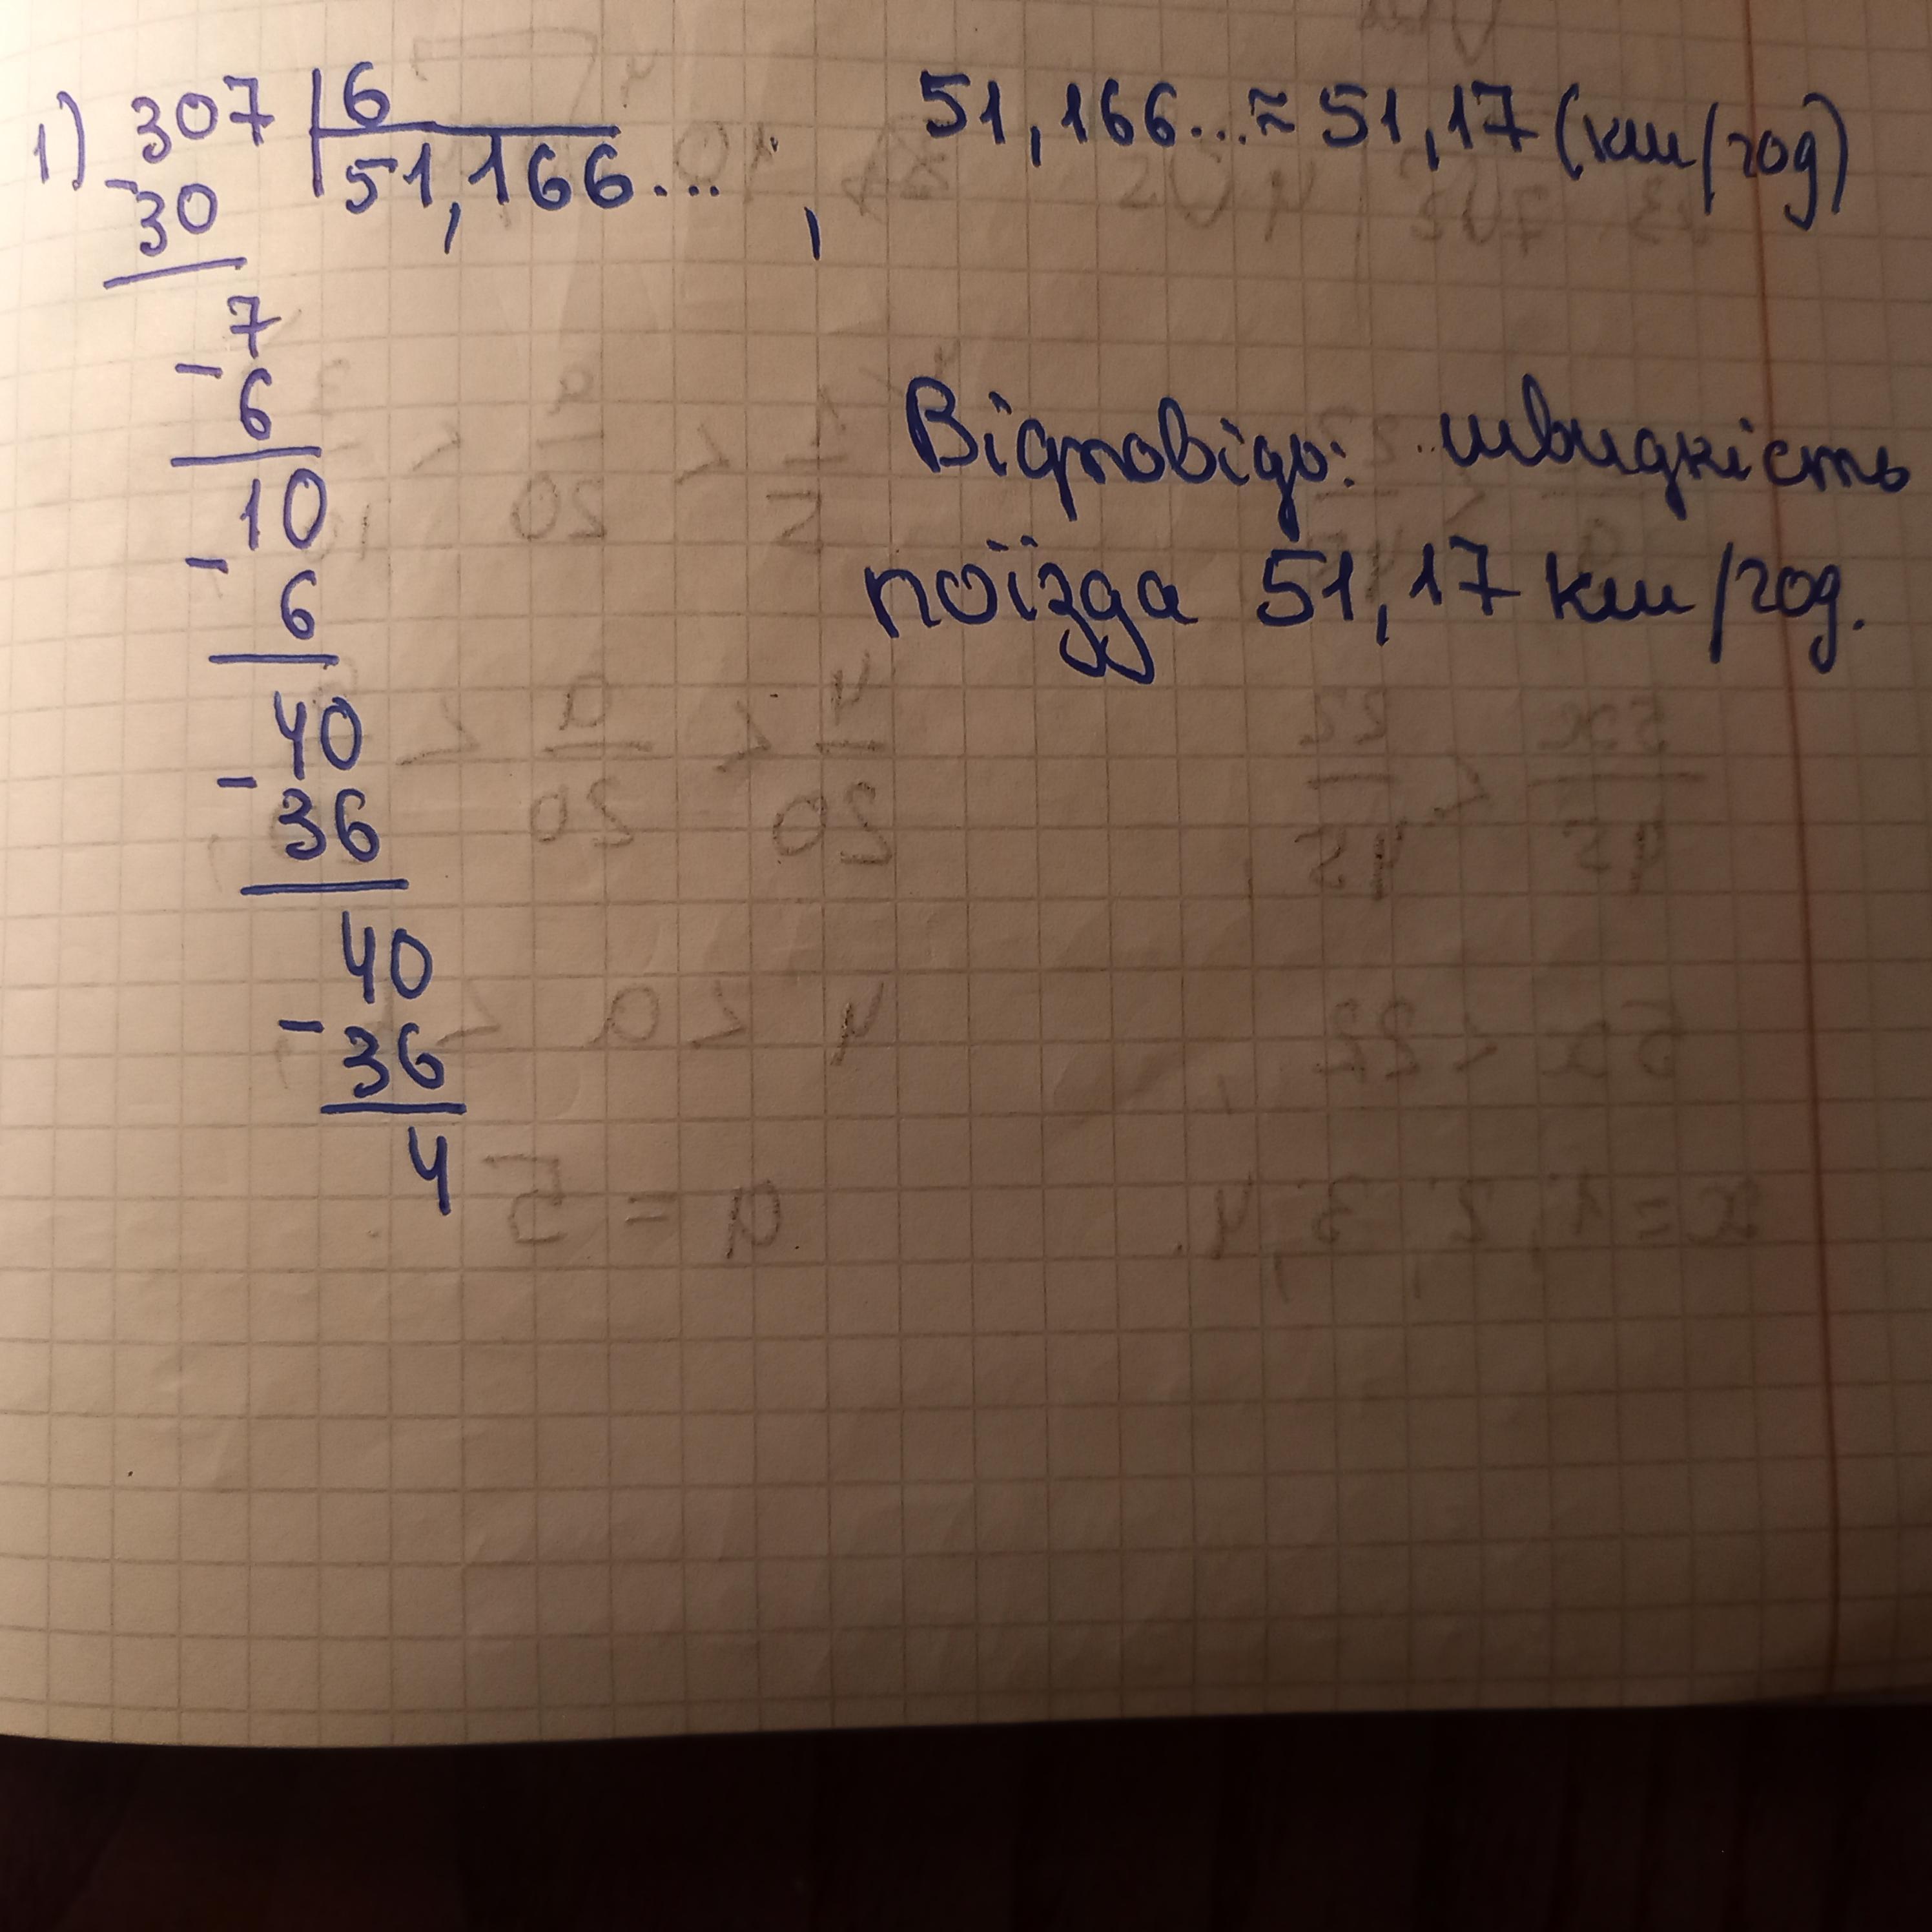 1) 307 | 6
- 30 | 51,166... , 51,166... ≈ 51,17 (км/год)
7
- 6
10
- 6
40
- 36
40
- 36
4
Відповідь: швидкість
поїзда 51,17 км/год.